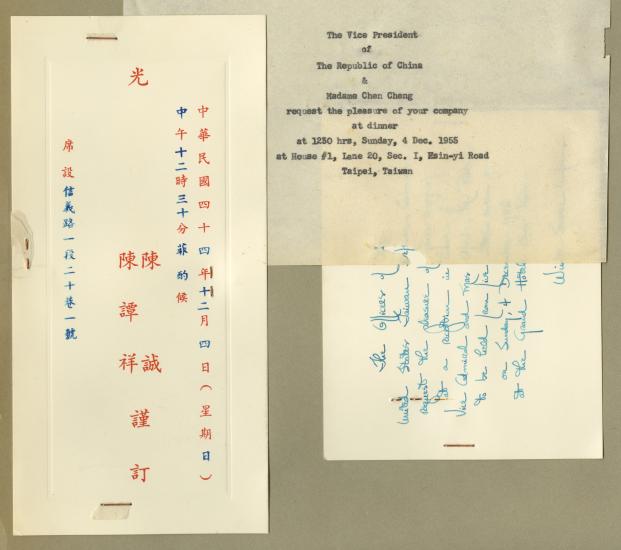 中華民國四十四年十二月四日(星期日)
中午十二時三十分菲酌候
光
陳誠
陳譚祥
謹訂
席設信義路一段二十巷一號
The Vice President
of
The Republic of China
&
Madame Chen Cheng
request the pleasure of your company
at dinner
at 1230 hrs, Sunday, 4 Dec. 1955
at House #1, Lane 20, Sec. I, Hsin-yi Road
Taipei, Taiwan
The Officers of
United States Taiwan
request the pleasure of
at a reception in
Vice Admiral and Mrs
to be held from
on Sunday, 4 Dece
at the Grand Hotel